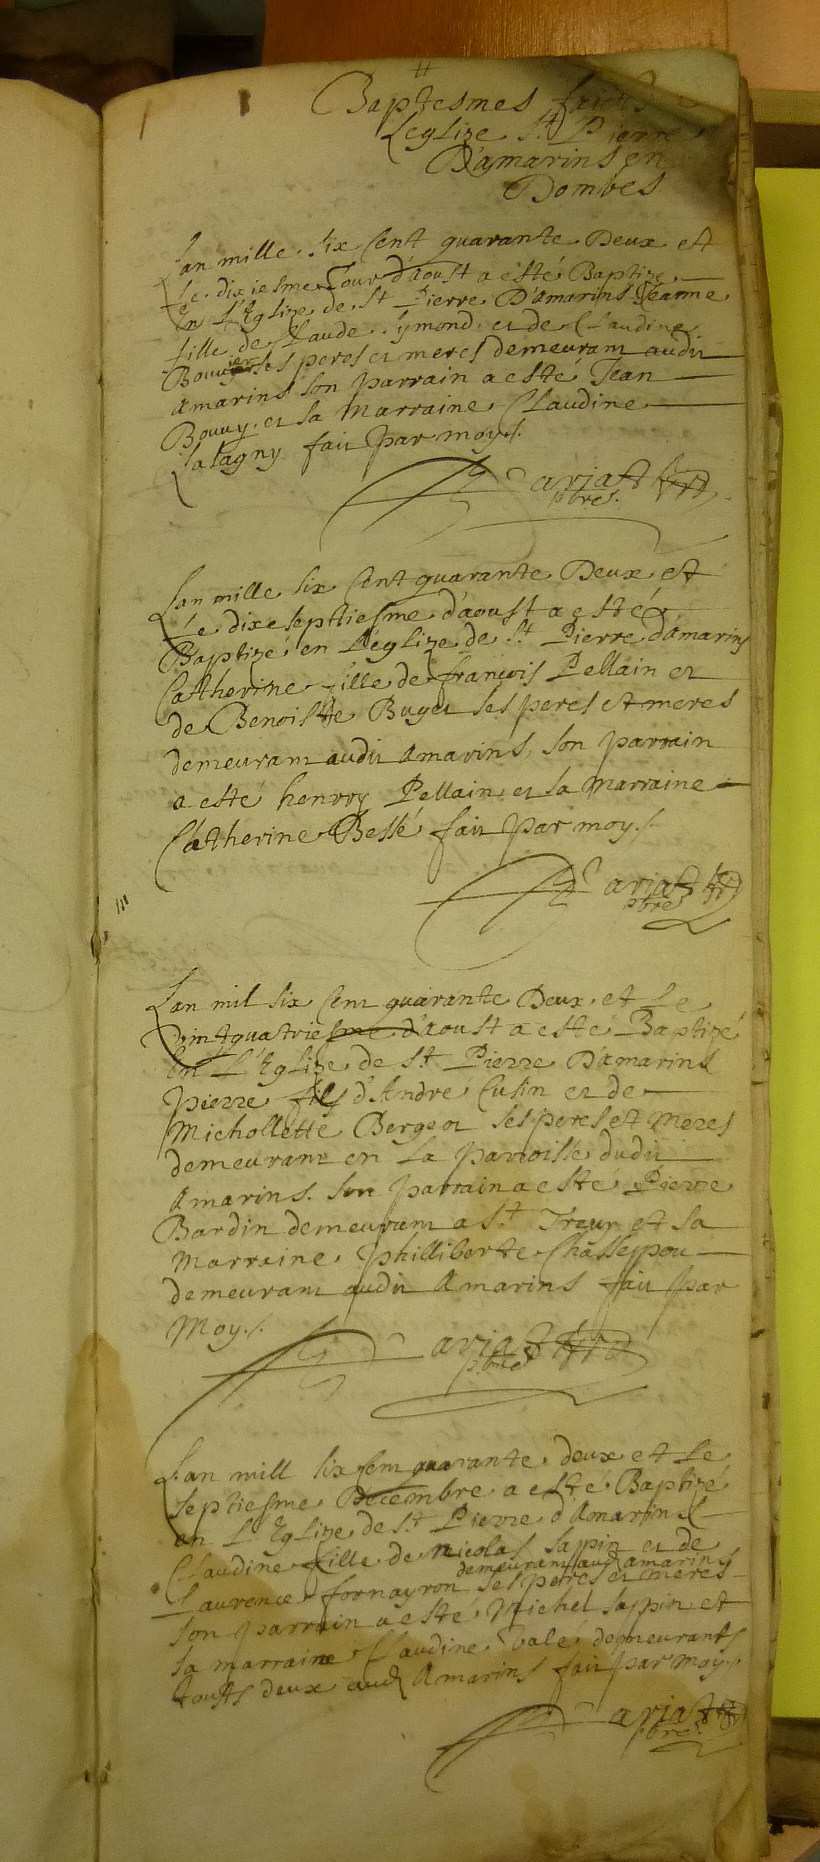 Baptesmes faicts
Leglize St Pierre
D'amarins en
Dombes
Lan mille six Cent quarante Deux et
Le dixiesme Jour d'aoust a esté Baptize
En L'Eglize de St Pierre D'amarins Jeanne
fille de Claude Symond et de Claudine
Bouvier ses peres et meres demeurant audit
amarins son parrain a esté Jean
Bouvy et sa Marraine Claudine
Salagny fait par moy./.
ariat
pbre.
Lan mille six Cent quarante Deux et
Le dixeseptiesme d'aoust a esté
Baptizé en L'eglize de St Pierre d'amarins
Catherine fille de françois Pellain et
de Benoiste Buget ses peres et meres
demeurant audit amarins, son parrain
a esté henrry Pellain et sa Marraine
Catherine Bessé fait par moy./.
ariat
pbre
Lan mil six Cent quarante Deux et Le
Vintquatriesme d'aoust a esté Baptizé
En L'Eglize de St Pierre D'amarins
Pierre fils d'André Cusin et de
Michollette Bergeot ses peres et Meres
demeurant en La parroisse dudit
Amarins. son parrain a esté Pierre
Bardin demeurant a St Treur et sa
Marraine Philliberte Chassepou
demeurant audit Amarins fait par
Moy./.
ariat
pbre
Lan mill six Cent quarante deux et Le
septiesme Decembre a esté Baptizé
en L'Eglize de St Pierre d'Amarins
Claudine fille de nicolas sappin et de
demeurant aud amarins
Laurence fornayron ses peres et meres
son parrain a esté Michel sappin et
sa marraine Claudine Valé demeurants
touts deux aud Amarins fait par moy./.
ariat
pbre.